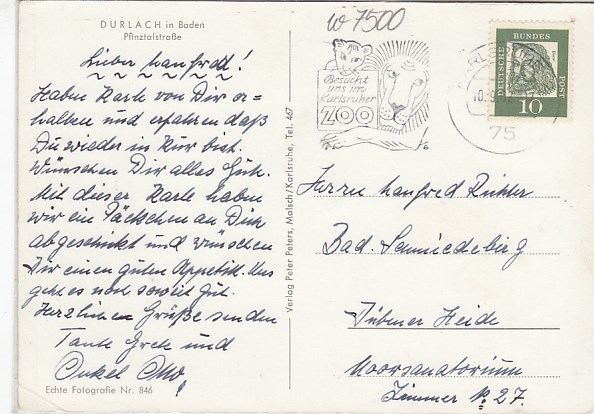 DURLACH in Baden
Pfinztalstraße
Lieber Manfred!
Haben Karte von Dir er=
halten und erfahren daß
Du wieder in Kur bist.
Wünschen Dir alles Gute.
Mit dieser Karte haben
wir ein Päckchen an Dich
abgeschickt und wünschen
Dir einen guten Appetit. Uns
geht es noch soweit gut.
Herzlichen Grüße senden
Tante Grete und
Onkel Otto
Echte Fotografie Nr. 846
Verlag Peter Peters, Malsch/Karlsruhe, Tel. 467
W 7500
Besucht
uns im
Karlsruher
ZOO
75
DEUTSCHE
BUNDES
POST
10
Herrn Manfred Richter
Bad. Schmiedeberg
Dübener Heide
Moorsanatorium
Zimmer No 27.